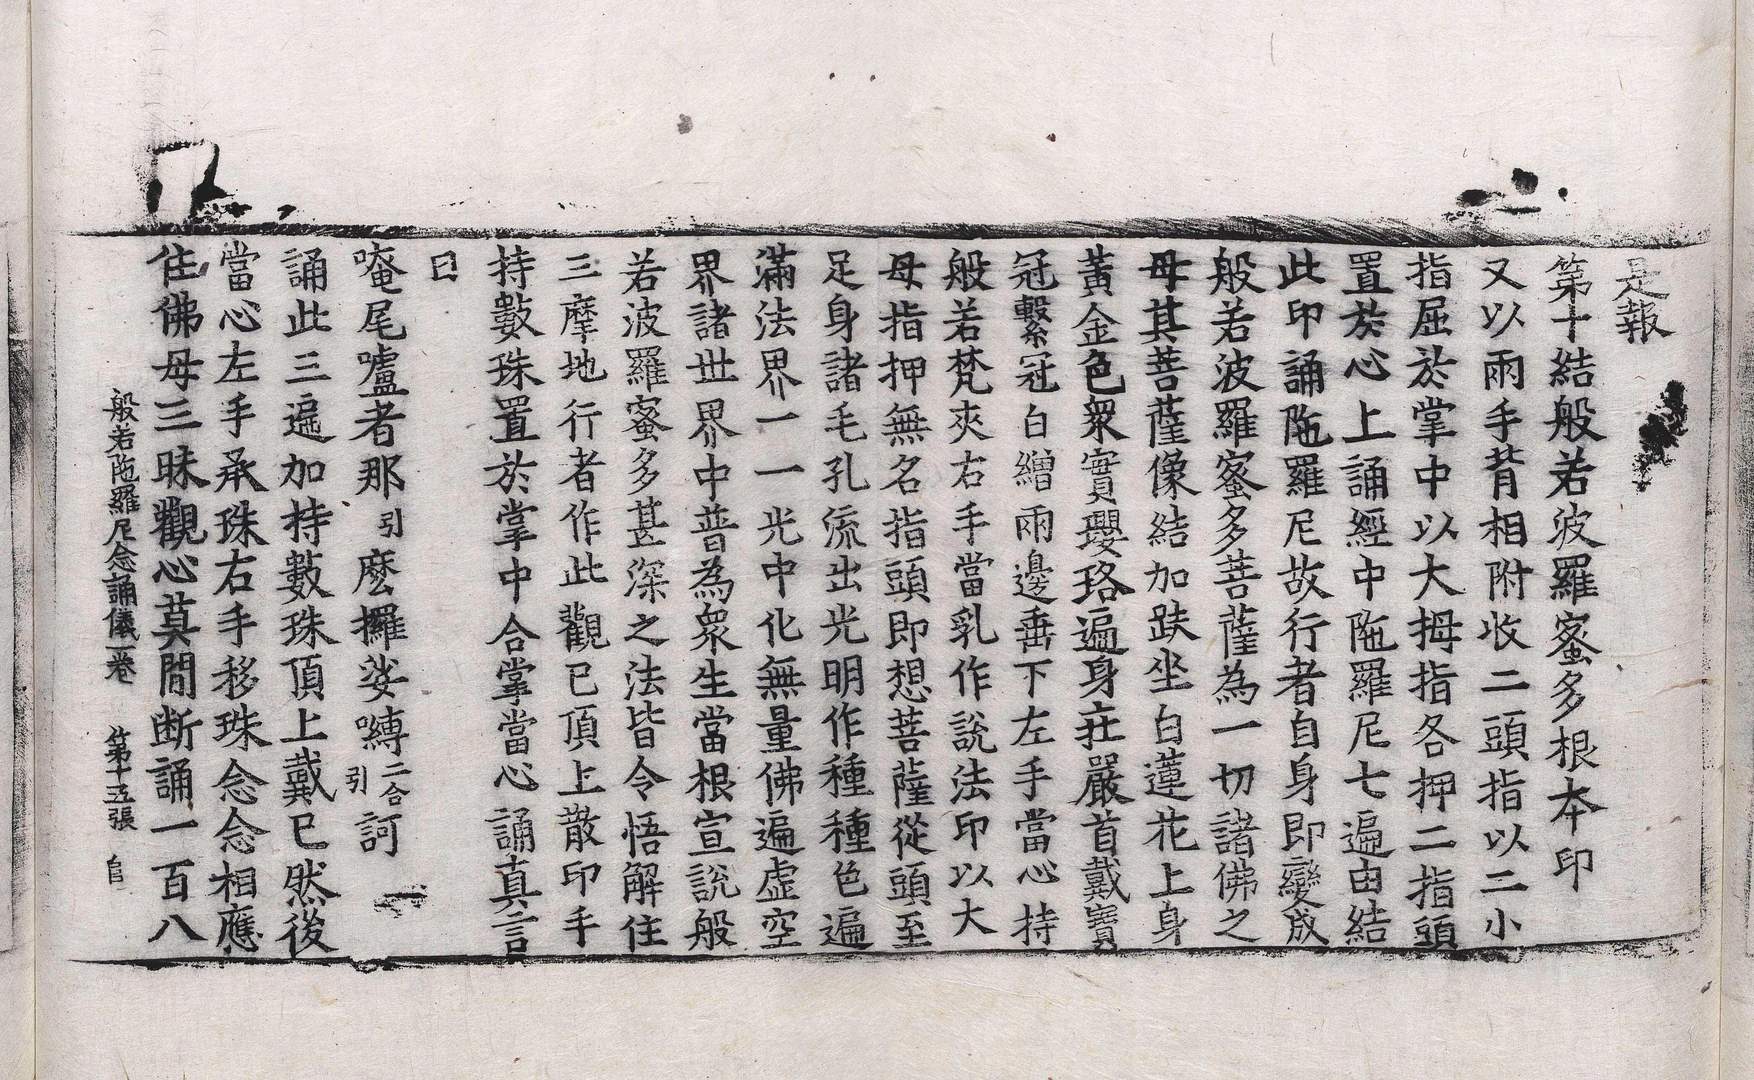 是報
第十結般若波羅蜜多根本印
又以兩手背相附收二頭指以二小
指屈於掌中以大拇指各押二指頭
置於心上誦經中陁羅尼七遍由結
此印誦陁羅尼故行者自身即變成
般若波羅蜜多菩薩為一切諸佛之
母其菩薩像結加趺坐白蓮花上身
黃金色衆寶瓔珞遍身莊嚴首戴寶
冠繫冠白繒兩邊垂下左手當心持
般若梵夾右手當乳作說法印以大
母指押無名指頭即想菩薩從頭至
足身諸毛孔流出光明作種種色遍
滿法界一一光中化無量佛遍虛空
界諸世界中普為衆生當根宣說般
若波羅蜜多甚深之法皆令悟解住
三摩地行者作此觀已頂上散印手
持數珠置於掌中合掌當心誦真言
曰
唵尾嚧者那引麽攞娑嚩二合引訶
誦此三遍加持數珠頂上戴已然後
當心左手承珠右手移珠念念相應
住佛母三昧觀心莫間断誦一百八
般若陁羅尼念誦儀一卷 第十五張 自